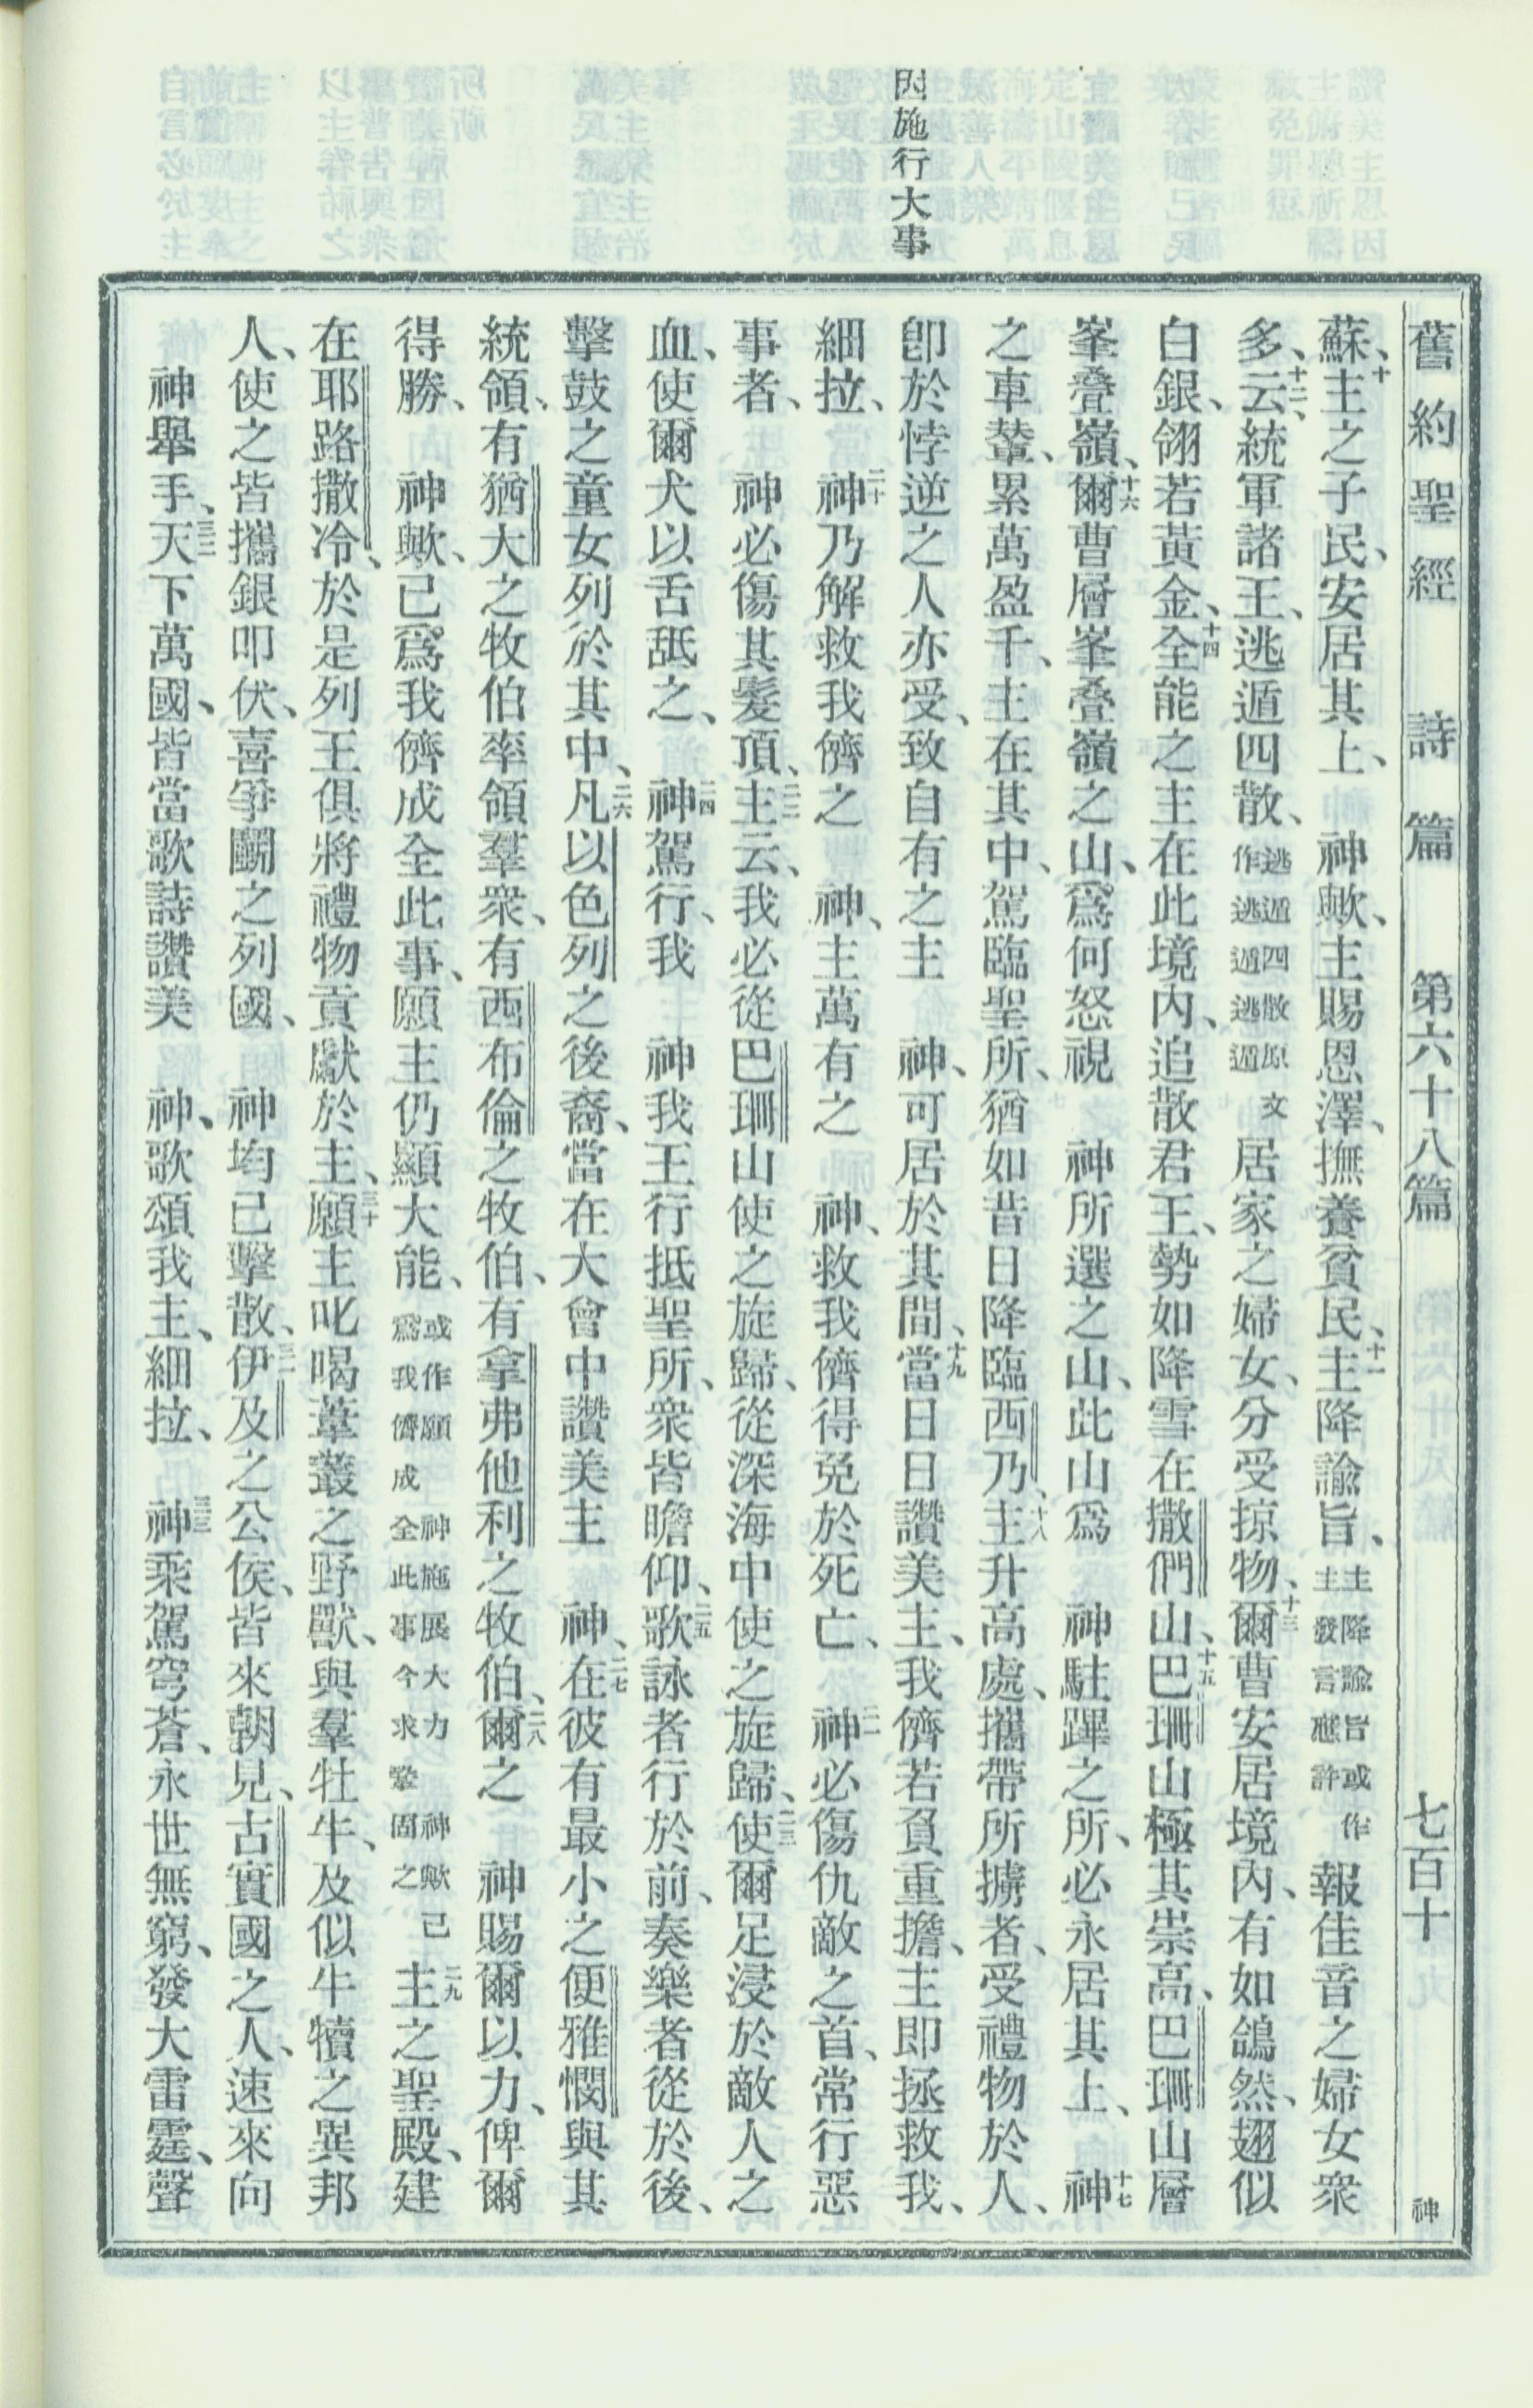 因施行大事
舊約聖經 詩篇 第六十八篇 七百十 神
蘇、十主之子民、安居其上、 神歟、主賜恩澤、撫養貧民、十一主降諭旨、主降諭旨或作主發言應許報佳音之婦女衆
多、十二云、統軍諸王、逃遁四散、逃遁四散原文作逃遁逃遁居家之婦女、分受掠物、十三爾曹安居境內、有如鴿然、翅似
白銀、翎若黃金、十四全能之主在此境內、追散君王、勢如降雪在撒們山、十五巴珊山極其崇高、巴珊山層
峯疊嶺、十六爾曹層峯疊嶺之山、爲何怒視 神所選之山、此山爲 神駐蹕之所、必永居其上、十七 神
之車輦、累萬盈千、主在其中、駕臨聖所、猶如昔日降臨西乃、十八主升高處、攜帶所擄者、受禮物於人、
卽於悖逆之人亦受、致自有之主 神、可居於其間、十九當日日讚美主、我儕若負重擔、主即拯救我、
細拉、二十 神乃解救我儕之 神、主萬有之 神、救我儕得免於死亡、二一 神必傷仇敵之首、常行惡
事者、 神必傷其髮頂、二二主云、我必從巴珊山使之旋歸、從深海中使之旋歸、二三使爾足浸於敵人之
血、使爾犬以舌舐之、二四 神駕行、我 神我王行抵聖所、衆皆瞻仰、二五歌詠者行於前、奏樂者從於後、
擊鼓之童女列於其中、二六凡以色列之後裔、當在大會中讚美主 神、二七在彼有最小之便雅憫與其
統領、有猶大之牧伯率領羣衆、有西布倫之牧伯、有拿弗他利之牧伯、二八爾之 神賜爾以力、俾爾
得勝、 神歟、已爲我儕成全此事、願主仍顯大能、或作願 神施展大力 神歟已爲我儕成全此事今求鞏固之二九主之聖殿、建
在耶路撒冷、於是列王俱將禮物貢獻於主、三十願主叱喝葦叢之野獸、與羣牡牛、及似牛犢之異邦
人、使之皆攜銀叩伏、喜爭鬭之列國、 神均已擊散、三一伊及之公侯、皆來朝見、古實國之人、速來向
 神舉手、三二天下萬國、皆當歌詩讚美 神、歌頌我主、細拉、三三 神乘駕穹蒼、永世無窮、發大雷霆、聲